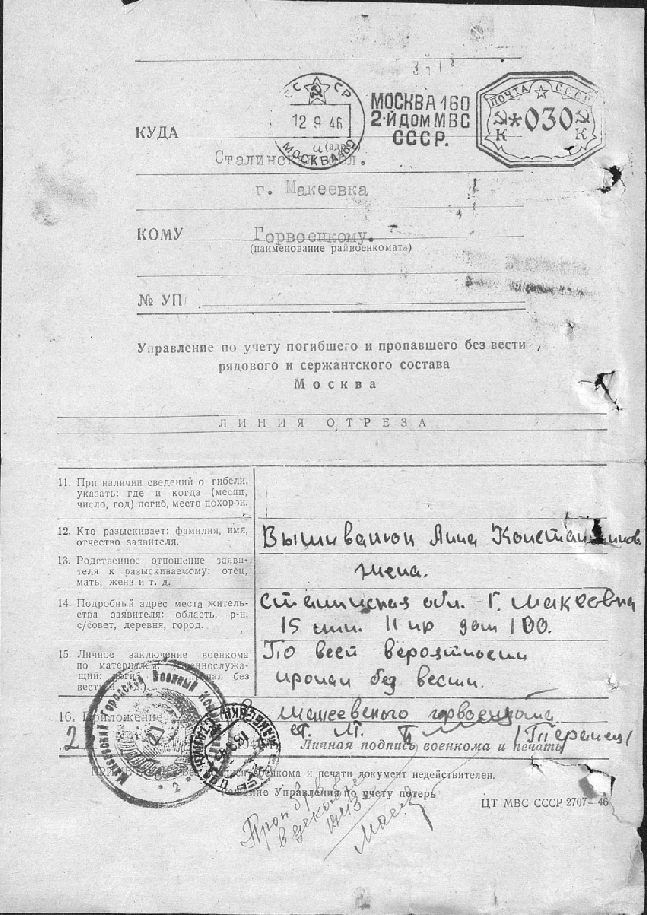 СССР
12 9 46
МОСКВА 160
МОСКВА 160
2-Й ДОМ МВС
СССР.
ПОЧТА СССР
*030
К К
КУДА
Сталинс обл.
г. Макеевка
КОМУ
Горвоенкому.
(наименование райвоенкомата)
№ УП/
Управление по учету погибшего и пропавшего без вести
рядового и сержантского состава
Москва
ЛИНИЯ ОТРЕЗА
11. При наличии сведений о гибели,
указать: где и когда (месяц,
число, год) погиб, место похорон.
12. Кто разыскивает: фамилия, имя,
отчество заявителя.
Анна Константинов
13. Родственное отношение заяви-
теля к разыскиваемому: отец,
мать, жена и т. д.
жена.
14. Подробный адрес места житель-
ства заявителя: область, р-н,
с/совет, деревня, город.
Сталинская обл. г. Макеевка
15 11 пр дом 100.
15 Личное заключение военкома
по материалам: военнослужа-
щий погиб без
вести
По всей вероятности
пропал без вести.
16. Приложение
2
Макеевского горвоенкома
Личная подпись военкома и печать
Макеевский Городской Военный
военкома и печати документ недействителен.
Управления по учету потерь
ЦТ МВС СССР 2707—46
1943